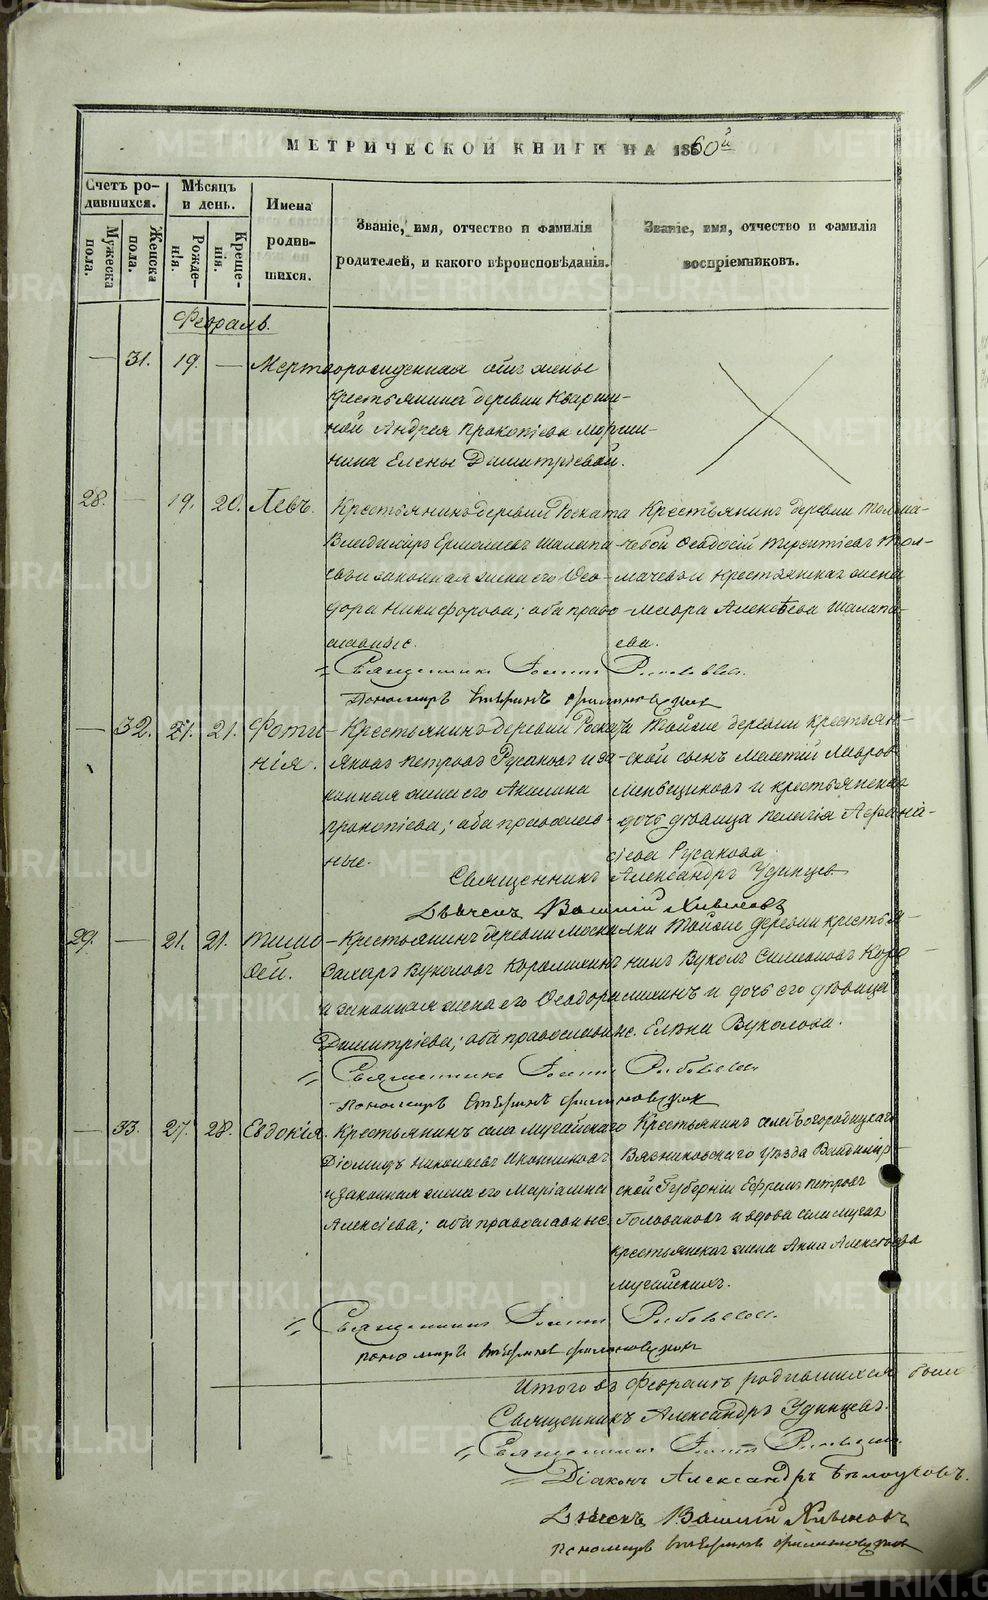 МЕТРИЧЕСКОЙ КНИГИ НА 1860й
Счетъ родившихся.
Мужеска пола.
Женска пола.
Мѣсяцъ и день.
Рожденія.
Крещенія.
Имена родившихся.
Званіе, имя, отчество и фамилія родителей, и какого вѣроисповѣданія.
Званіе, имя, отчество и фамилія воспріемниковъ.
Февраль.
— 31. 19. — Мертворожденная отъ жены
крестьянина деревни
ной Андрея Прокопіева
нина Елены Димитріевой.
28. — 19. 20. Левъ.
Крестьянинъ деревни Раската
Владиміръ Ермолаевъ Шалапа-
законная жена его Ѳео-
дора Никифорова; оба право-
славные.
Крестьянинъ деревни Толма-
чевой Ѳеодосій Терентіевъ Тол-
мачевъ и крестьянская жена
Мавра Алексѣева Шалапа-
ева.
Священникъ Іоаннъ
Пономарь
— 32. 21. 21. Фоти-
нія.
Крестьянинъ деревни Раската
Яковъ Петровъ Русаковъ и за-
конная жена его Акилина
Прокопіева; оба православ-
ные.
Тойже деревни крестьян-
ской сынъ Мелетій Лавровъ
Меньщиковъ и крестьянская
дочь дѣвица Пелагія Аѳана-
сіева Русакова
Священникъ Александръ Удинцевъ
Дьячекъ Василій Хивыковъ
29. — 21. 21. Тимо-
ѳей.
Крестьянинъ деревни Москалки
Захаръ Вуколовъ Карамихинъ
и законная жена его Ѳеодора
Димитріева; оба православные.
Тойже деревни крестья-
нинъ Вуколъ Симеоновъ Кара-
михинъ и дочь его дѣвица
Елена Вуколова.
Священникъ Іоаннъ
Пономарь
— 33. 27. 28. Евдокія.
Крестьянинъ села Мугайскаго
Діомидъ Николаевъ Иконниковъ
и законная жена его Маріамна
Алексіева; оба православные.
Крестьянинъ села Богородицкаго
Вязниковскаго уѣзда Владимір-
ской Губерніи Ефремъ Петровъ
Головановъ и вдова села Мугая
крестьянская жена Анна Алексѣева
Мугайскихъ.
Священникъ Іоаннъ
Пономарь
Итого въ Февралѣ родившихся было
Священникъ Александръ Удинцевъ.
Священникъ Іоаннъ
Діаконъ Александръ Бѣлоусовъ.
Дьячекъ Василій Хивыковъ
Пономарь
METRIKI.GASO-URAL.RU